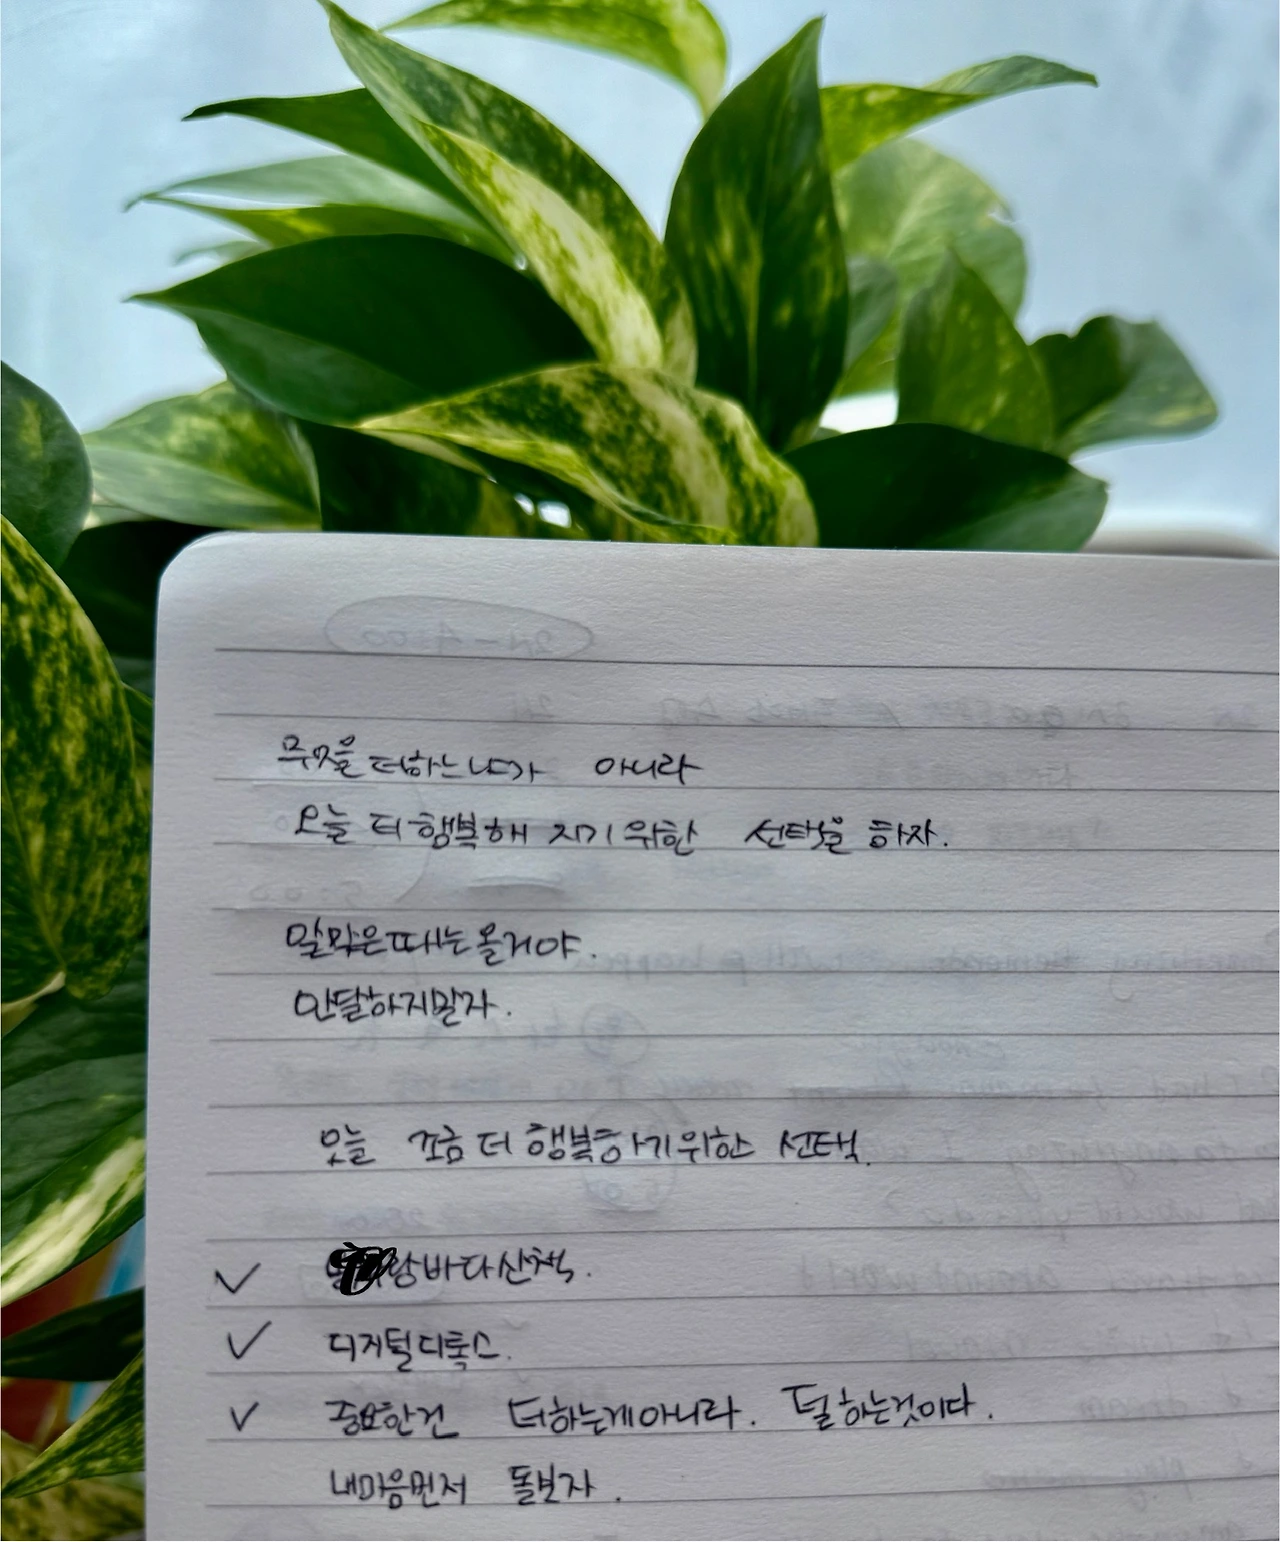 무엇을 더하는냐가 아니라
오늘 더 행복해 지기 위한 선택을 하자.
알맞은 때는 올거야.
안달하지말자.
오늘 조금 더 행복하기 위한 선택.
랑 바다산책.
디지털디톡스.
중요한건 더하는게아니라. 덜 하는것이다.
내마음먼저 돌보자.